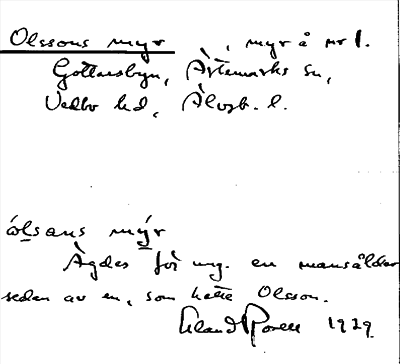 Olssons myr, myr å nr 1.
Gottarsbyn, Ärtemarks sn,
Vedbo hd, Älvsb. l.
ólsans mýr
Ägdes för ung. en mansålder
sedan av en, som hette Olsson.
Erland Rosell 1929.